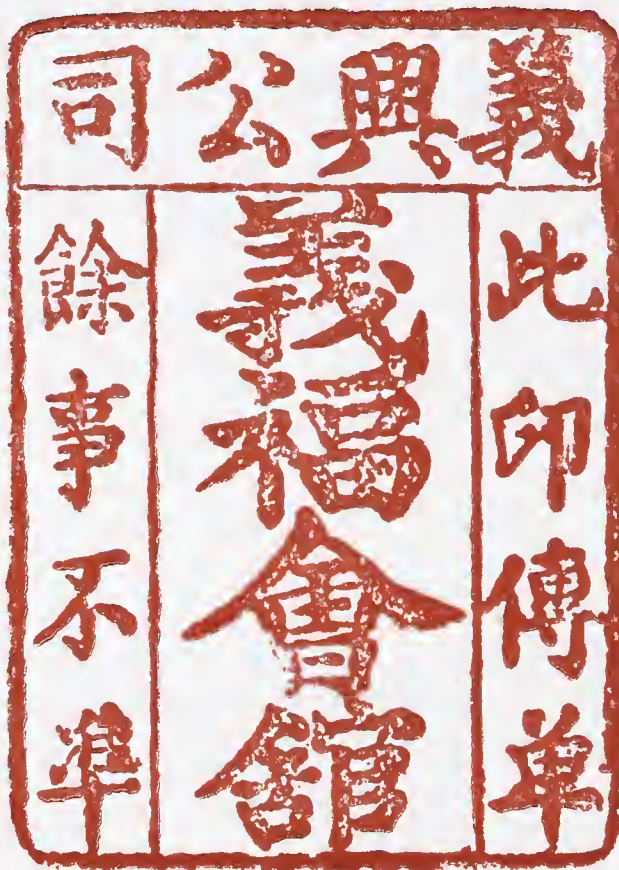 義興公司
此印傳单
義福會舘
餘事不準